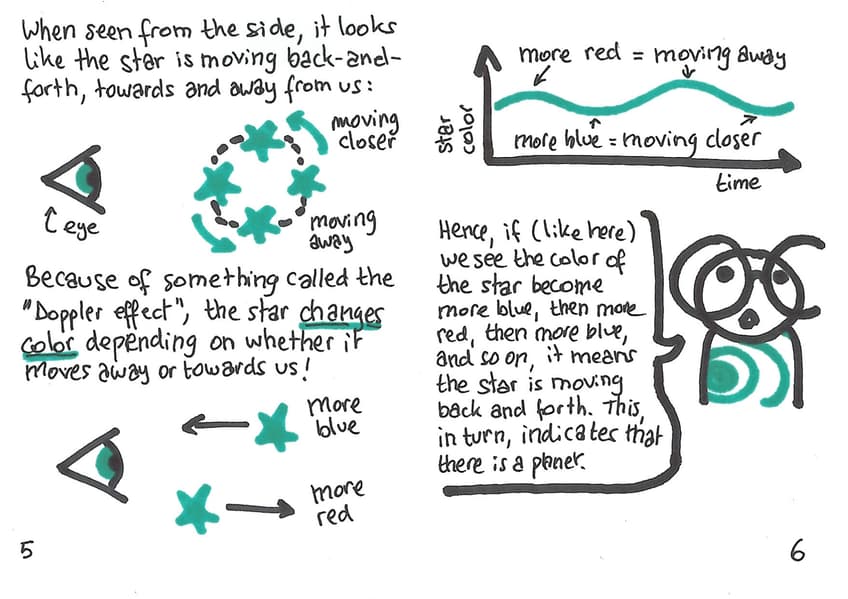 When seen from the side, it looks
like the star is moving back-and-
forth, towards and away from us:
moving
closer
eye
moving
away
Because of something called the
"Doppler effect", the star changes
color depending on whether it
moves away or towards us!
more
blue
more
red
5
more red = moving away
star
color
more blue = moving closer
time
Hence, if (like here)
we see the color of
the star become
more blue, then more
red, then more blue,
and so on, it means
the star is moving
back and forth. This,
in turn, indicates that
there is a planet.
6